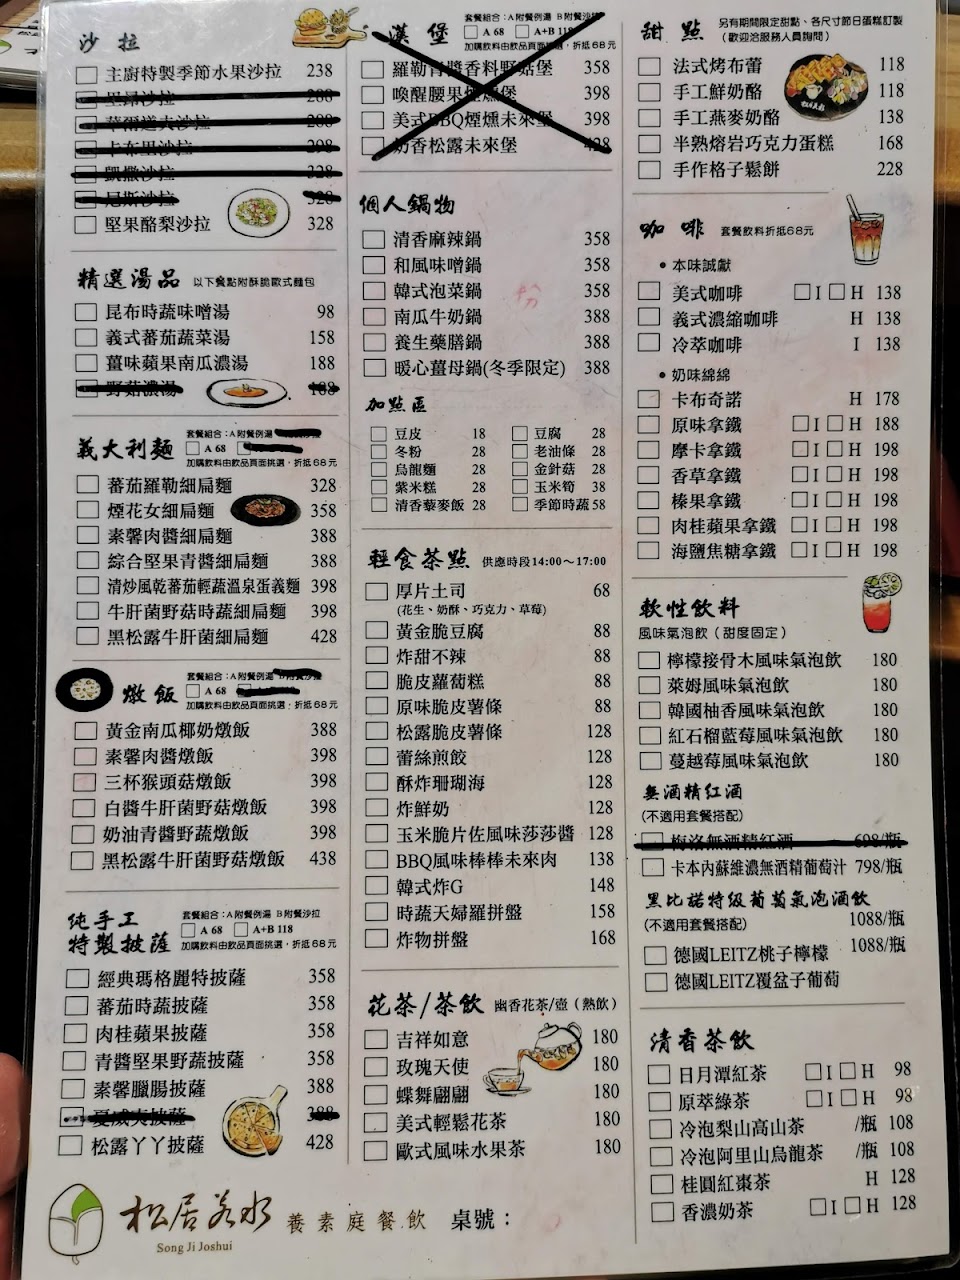 沙拉
主廚特製季節水果沙拉 238
凱撒沙拉 328
尼斯沙拉 328
堅果酪梨沙拉 328
精選湯品 以下餐點附酥脆歐式麵包
昆布時蔬味噌湯 98
義式蕃茄蔬菜湯 158
薑味蘋果南瓜濃湯 188
野菇濃湯 188
義大利麵 套餐組合:A附餐例湯
A 68
加購飲料由飲品頁面挑選,折抵68元
蕃茄羅勒細扁麵 328
煙花女細扁麵 358
素馨肉醬細扁麵 388
綜合堅果青醬細扁麵 388
清炒風乾蕃茄輕蔬溫泉蛋義麵 398
牛肝菌野菇時蔬細扁麵 398
黑松露牛肝菌細扁麵 428
燉飯 套餐組合:A附餐例湯 B附餐沙拉
A 68
加購飲料由飲品頁面挑選,折抵68元
黃金南瓜椰奶燉飯 388
素馨肉醬燉飯 398
三杯猴頭菇燉飯 398
白醬牛肝菌野菇燉飯 398
奶油青醬野蔬燉飯 398
黑松露牛肝菌野菇燉飯 438
純手工
特製披薩
套餐組合:A附餐例湯 B附餐沙拉
A 68 A+B 118
加購飲料由飲品頁面挑選,折抵68元
經典瑪格麗特披薩 358
蕃茄時蔬披薩 358
肉桂蘋果披薩 358
青醬堅果野蔬披薩 358
素馨臘腸披薩 388
夏威夷披薩 388
松露丫丫披薩 428
漢堡 套餐組合:A附餐例湯 B附餐沙拉
A 68 A+B 118
加購飲料由飲品頁面挑選,折抵68元
羅勒青醬香料野菇堡 358
喚醒腰果煙燻堡 398
美式BBQ煙燻未來堡 398
奶香松露未來堡 428
個人鍋物
清香麻辣鍋 358
和風味噌鍋 358
韓式泡菜鍋 358
南瓜牛奶鍋 388
養生藥膳鍋 388
暖心薑母鍋(冬季限定) 388
加點區
豆皮 18 豆腐 28
冬粉 28 老油條 28
烏龍麵 28 金針菇 28
紫米糕 28 玉米筍 38
清香藜麥飯 28 季節時蔬 58
輕食茶點 供應時段14:00~17:00
厚片土司 68
(花生、奶酥、巧克力、草莓)
黃金脆豆腐 88
炸甜不辣 88
脆皮蘿蔔糕 88
原味脆皮薯條 88
松露脆皮薯條 128
蕾絲煎餃 128
酥炸珊瑚海 128
炸鮮奶 128
玉米脆片佐風味莎莎醬 128
BBQ風味棒棒未來肉 138
韓式炸G 148
時蔬天婦羅拼盤 158
炸物拼盤 168
花茶/茶飲 幽香花茶/壺(熱飲)
吉祥如意 180
玫瑰天使 180
蝶舞翩翩 180
美式輕鬆花茶 180
歐式風味水果茶 180
甜點 另有期間限定甜點、各尺寸節日蛋糕訂製
(歡迎洽服務人員詢問)
法式烤布蕾 118
手工鮮奶酪 118
手工燕麥奶酪 138
半熟熔岩巧克力蛋糕 168
手作格子鬆餅 228
咖啡 套餐飲料折抵68元
• 本味誠獻
美式咖啡 I H 138
義式濃縮咖啡 H 138
冷萃咖啡 I 138
• 奶味綿綿
卡布奇諾 H 178
原味拿鐵 I H 188
摩卡拿鐵 I H 198
香草拿鐵 I H 198
榛果拿鐵 I H 198
肉桂蘋果拿鐵 I H 198
海鹽焦糖拿鐵 I H 198
軟性飲料
風味氣泡飲(甜度固定)
檸檬接骨木風味氣泡飲 180
萊姆風味氣泡飲 180
韓國柚香風味氣泡飲 180
紅石榴藍莓風味氣泡飲 180
蔓越莓風味氣泡飲 180
無酒精紅酒
(不適用套餐搭配)
梅洛無酒精紅酒 698/瓶
卡本內蘇維濃無酒精葡萄汁 798/瓶
黑比諾特級葡萄氣泡酒飲
(不適用套餐搭配) 1088/瓶
德國LEITZ桃子檸檬 1088/瓶
德國LEITZ覆盆子葡萄
清香茶飲
日月潭紅茶 I H 98
原萃綠茶 I H 98
冷泡梨山高山茶 /瓶 108
冷泡阿里山烏龍茶 /瓶 108
桂圓紅棗茶 H 128
香濃奶茶 I H 128
松居若水 養素庭餐飲 桌號:
Song Ji Joshui